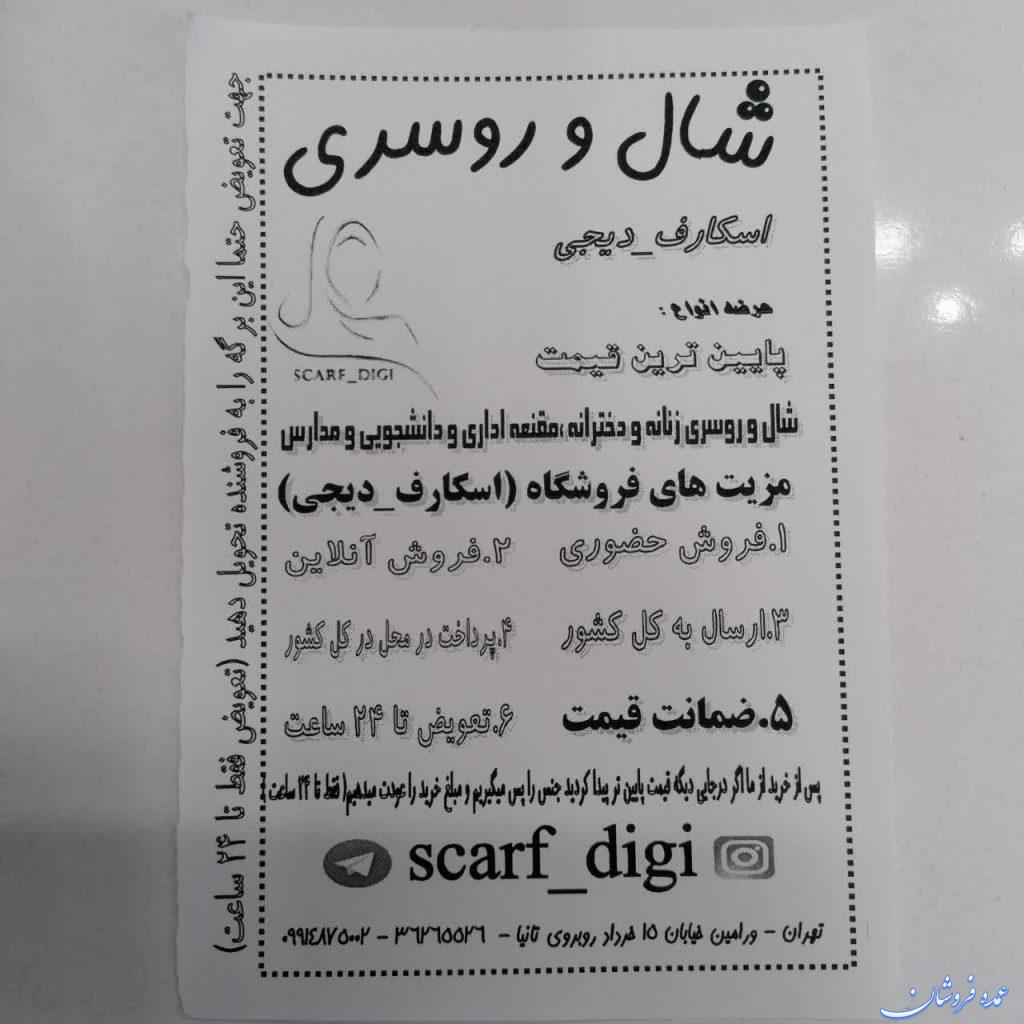 شال و روسری
اسکارف_دیجی
SCARF_DIGI
عرضه انواع :
پایین ترین قیمت
شال و روسری زنانه و دخترانه ،مقنعه اداری و دانشجویی و مدارس
مزیت های فروشگاه (اسکارف_دیجی)
۱.فروش حضوری ۲.فروش آنلاین
۳.ارسال به کل کشور ۴.پرداخت در محل در کل کشور
۵.ضمانت قیمت ۶.تعویض تا ۲۴ ساعت
پس از خرید از ما اگر درجایی دیگه قیمت پایین تر پیدا کردید جنس را پس میگیریم و مبلغ خرید را عودت میدهیم( فقط تا ۲۴ ساعت )
scarf_digi
تهران - ورامین خیابان ۱۵ خرداد روبروی تانیا - ۳۶۲۶۵۵۲۶ - ۰۹۹۱۴۸۷۵۰۰۲
جهت تعویض حتما این برگه را به فروشنده تحویل دهید (تعویض فقط تا ۲۴ ساعت)
عمده فروشان